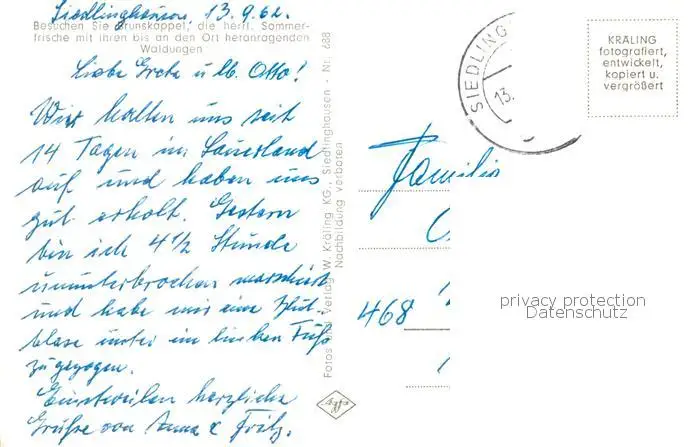 Siedlinghausen, 13.9.62.
Besuchen Sie Brunskappel, die herrl. Sommer-
frische mit ihren bis an den Ort heranragenden
Waldungen
Liebe Greta u. lb. Otto!
Wir halten uns seit
14 Tagen im Sauerland
auf und haben uns
gut erholt. Gestern
bin ich 4 1/2 Stunde
ununterbrochen marschiert
und habe mir eine Blut-
blase unter im linken Fuß
zugezogen.
Einstweilen herzliche
Grüße von Anna & Fritz.
Fotos und Verlag W. Kräling KG., Siedlinghausen · Nr. 688
Nachbildung verboten
Agfa
SIEDLING
13.
KRÄLING
fotografiert,
entwickelt,
kopiert u.
vergrößert
Familie
468
privacy protection
Datenschutz